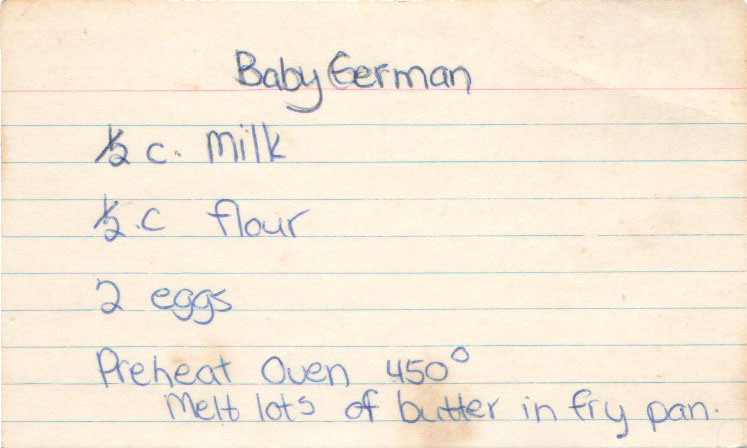 Baby German
½ c. Milk
½ c flour
2 eggs
Preheat Oven 450°
Melt lots of butter in fry pan.